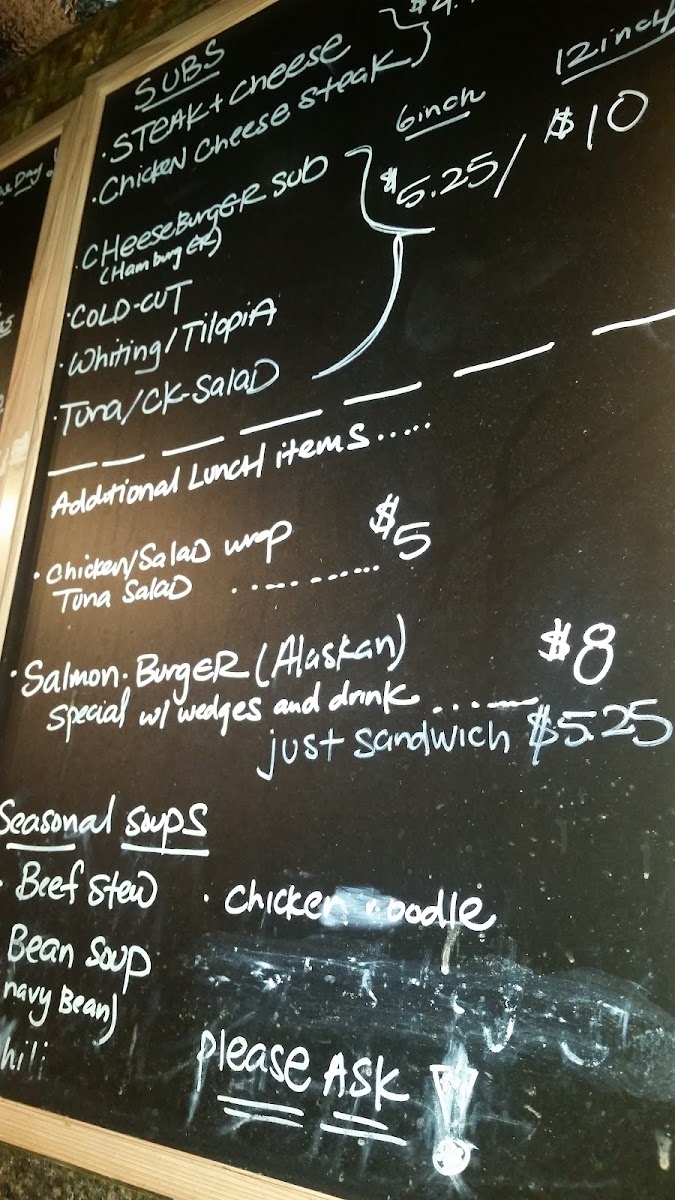 SUBS
· STEAK + Cheese
· Chicken Cheese Steak
6inch 12inch
$5.25/ $10
· CHeeseBurgER Sub
(HamburgER)
· COLD-CUT
· Whiting/Tilapia
· Tuna/CK-Salad
Additional Lunch items.....
· Chicken/Salad wrap $5
Tuna Salad
· Salmon. BurgER (Alaskan) $8
Special w/ wedges and drink
just sandwich $5.25
Seasonal Soups
· Beef Stew · Chicken oodle
Bean Soup
navy Bean)
hili
please ASK !